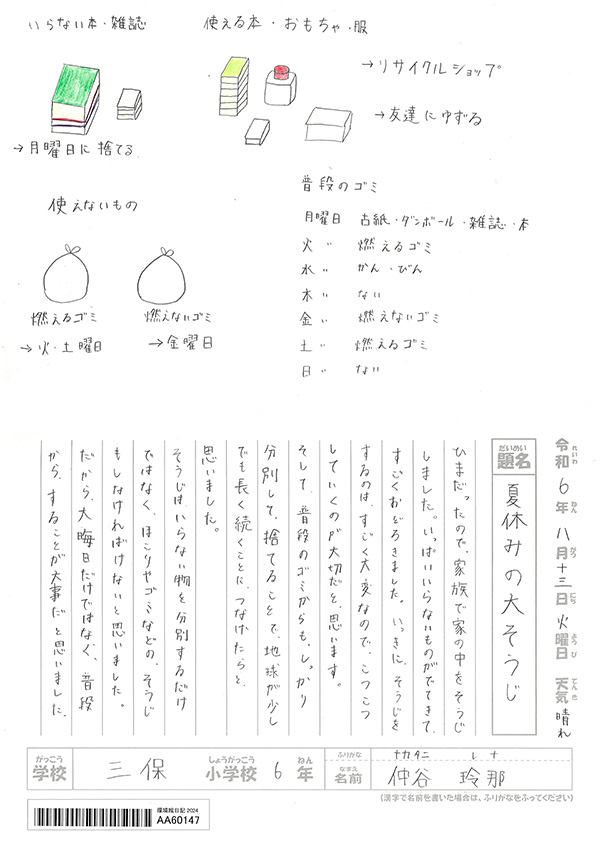 いらない本・雑誌
使える本・おもちゃ・服
→リサイクルショップ
→友達にゆずる
→月曜日に捨てる
使えないもの
燃えるゴミ
→火・土曜日
燃えないゴミ
→金曜日
普段のゴミ
月曜日 古紙・ダンボール・雑誌・本
火 〃 燃えるゴミ
水 〃 かん・びん
木 〃 ない
金 〃 燃えないゴミ
土 〃 燃えるゴミ
日 〃 ない
令和6年八月十三日火曜日 天気晴れ
れいわ ねん がつ にち ようび てんき
だいめい
題名 夏休みの大そうじ
ひまだったので、家族で家の中をそうじ
しました。いっぱいいらないものがでてきて、
すごくおどろきました。いっきに、そうじを
するのは、すごく大変なので、こつこつ
していくのが大切だと、思います。
そして、普段のゴミからも、しっかり
分別して、捨てることで、地球が少し
でも長く続くことに、つなげたらと、
思いました。
そうじは、いらない物を分別するだけ
ではなく、ほこりやゴミなどの、そうじ
もしなければけないと思いました。
だから、大晦日だけではなく、普段
から、することが大事だと思いました。
がっこう しょうがっこう ねん
学校 三保 小学校 6年
ふりがな ナカタニ レナ
なまえ
名前 仲谷 玲那
(漢字で名前を書いた場合は、ふりがなをふってください)
環境絵日記 2024
AA60147